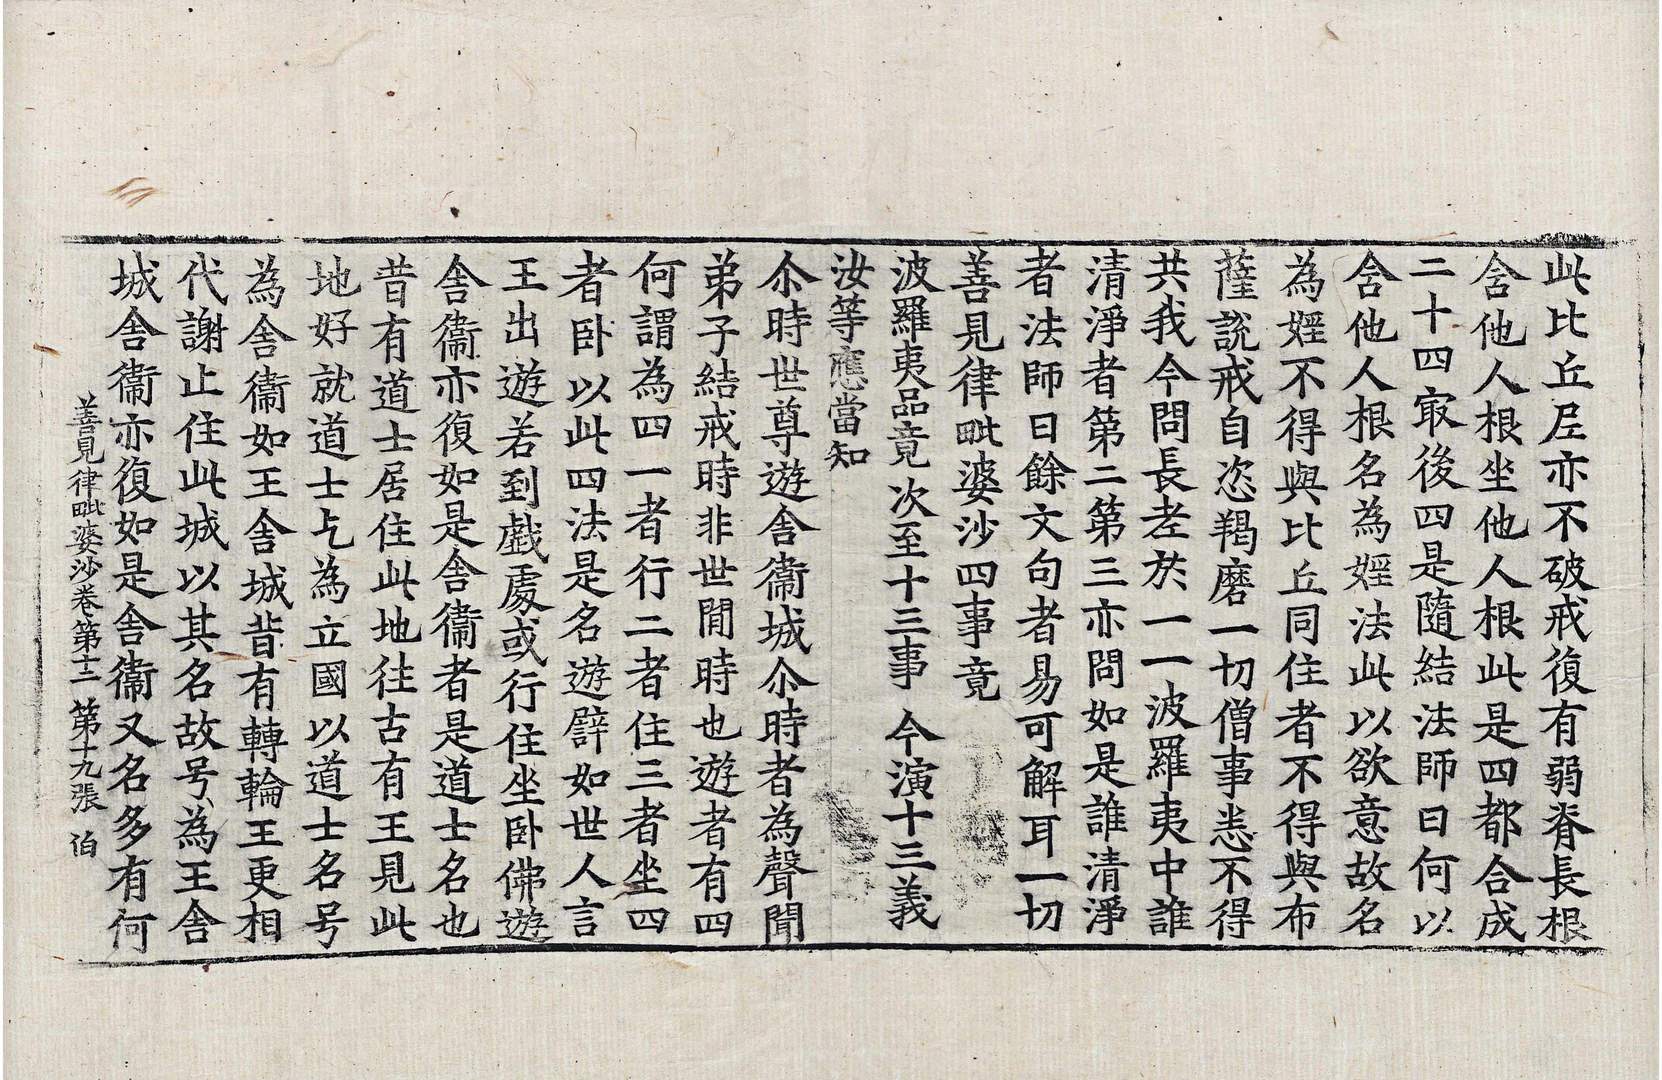 此比丘尼亦不破戒復有弱脊長根
含他人根坐他人根此是四都合成
二十四㝡後四是隨結法師曰何以
含他人根名為婬法此以欲意故名
為婬不得與比丘同住者不得與布
薩說戒自恣羯磨一切僧事悉不得
共我今問長老於一一波羅夷中誰
清淨者第二第三亦問如是誰清淨
者法師曰餘文句者易可解耳一切
善見律毗婆沙四事竟
波羅夷品竟次至十三事 今演十三義
汝等應當知
尒時世尊遊舍衞城尒時者為聲聞
弟子結戒時非世間時也遊者有四
何謂為四一者行二者住三者坐四
者卧以此四法是名遊譬如世人言
王出遊若到戲處或行住坐卧佛遊
舍衞亦復如是舍衞者是道士名也
昔有道士居住此地往古有王見此
地好就道士乞為立國以道士名号
為舍衞如王舍城昔有轉輪王更相
代謝止住此城以其名故号為王舍
城舍衞亦復如是舍衞又名多有何
善見律毗婆沙卷第十二 第十九張 伯